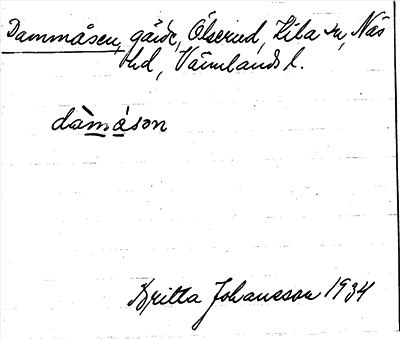 Dammåsen, gärde, Ölserud, Lila sn, Näs
hd, Värmlands l.
dàmåson
Britta Johansson 1934